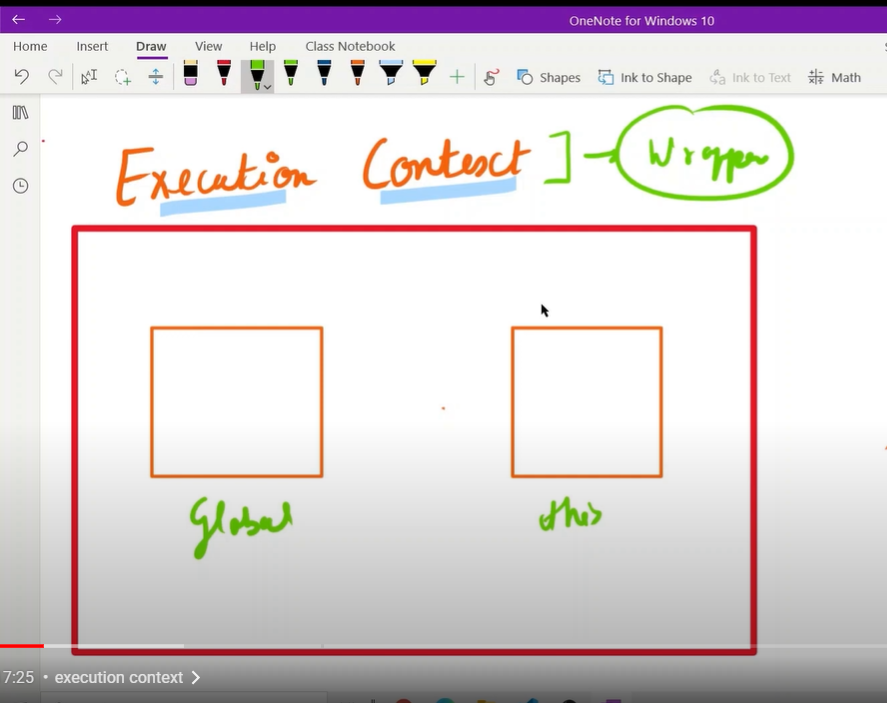 OneNote for Windows 10
Home Insert Draw View Help Class Notebook
Shapes Ink to Shape Ink to Text Math
Execution Context ] Wrapper
Global this
7:25 • execution context